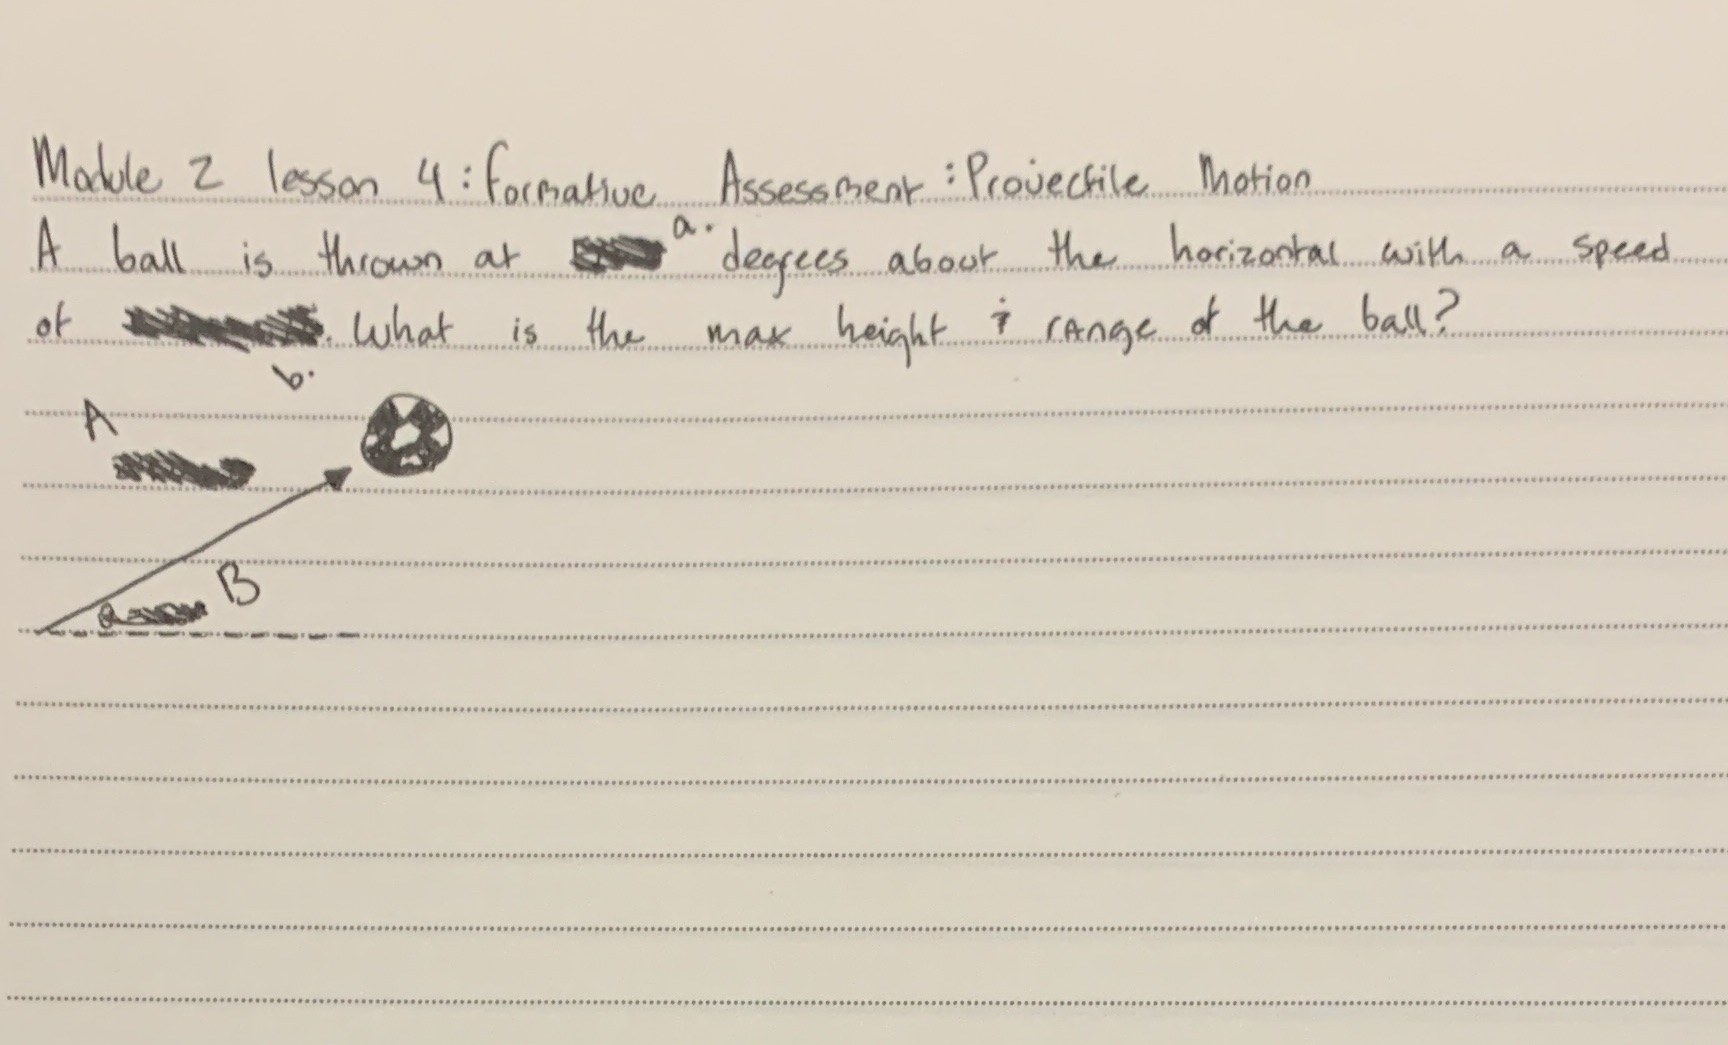 Module 2 lesson 4: Formative Assessment: Projectile Motion
a.
A ball is thrown at degrees about the horizontal with a speed
of . What is the max height & range of the ball?
b.
A
B